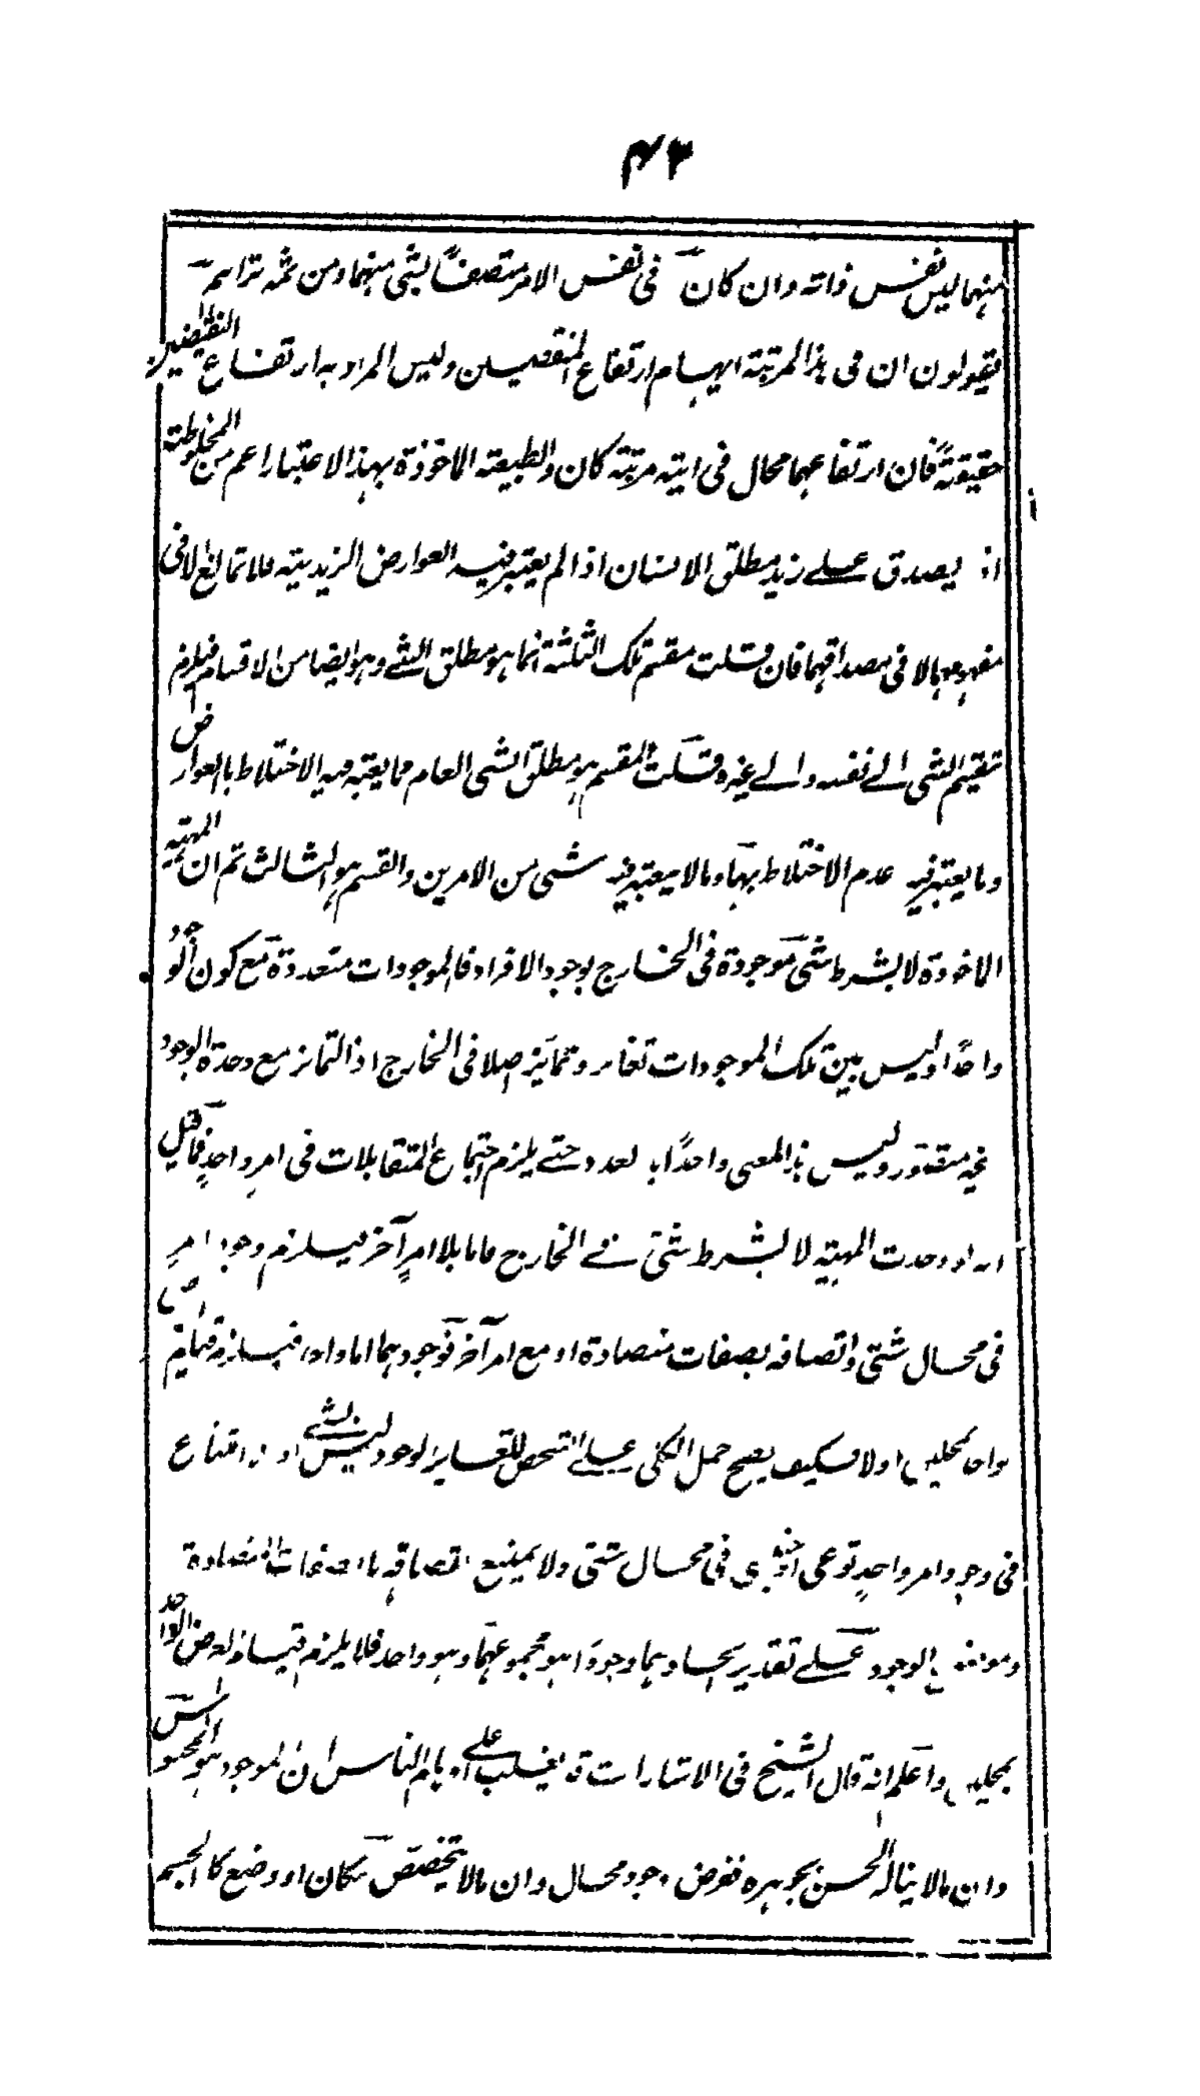 ۴۳
منهما ليس نفس ذاته وان كان فى نفس الامر متصفا بشئ منهما ومن ثمه تراهم
يقولون ان فى هذا المرتبة ايهام ارتفاع النقيضين وليس المراد به ارتفاع النقيضين
حقيقةً فان ارتفاعهما محال فى اية مرتبة كان والطبيعة الماخوذة بهذا الاعتبار اعم من المخلوطة
اذ يصدق علے زيد مطلق الانسان اذا لم يعتبر فيه العوارض الزيدية فلا تمانع لا فى
مفهومها لا فى مصداقهما فان قلت مقسم تلك الثلثة انما هو مطلق الشے وهو ايضا من الاقسام فيلزم
تقسيم الشئ الے نفسه والے غيره قلت المقسم هو مطلق الشئ العام مما يعتبر فيه الاختلاط بالعوارض
وما يعتبر فيه عدم الاختلاط بها وما لا يعتبر فيه شئ من الامرين والقسم هو الثالث ثم ان المهية
الماخوذة لا بشرط شئ موجودة فى الخارج بوجود الافراد فالموجودات متعددة مع كون الوجود
واحدًا وليس بين تلك الموجودات تغاير وتمايز اصلا فى الخارج اذ التمايز مع وحدة الوجود
غير متصور وليس هذا المعنى واحدًا بالعدد حتے يلزم اجتماع المتقابلات فى امرٍ واحدٍ فما قيل
انه لو وحدت المهية لا بشرط شئ فے الخارج فاما بلا امرٍ آخر فيلزم وجود امرٍ
فى محال شتى واتصافه بصفات متضادة او مع امر آخر فوجودهما اما واحد فيلزم قيام
واحد بمحلين اولا فكيف يصح حمل الكلى علے الشخص للتغاير الوجود ليس بشے اذ لا امتناع
فى وجود امر واحدٍ نوعى او جنسى فى محال شتى ولا يمنع اتصافه بالصفات المتضادة
ومعروض الوجود علے تقدير اتحادهما وجودا هو مجموعهما وهو واحد فلا يلزم قيام العرض الواحد
بمحلين واعلم انه قال الشيخ فى الاشارات قد يغلب علے اوهام الناس ان الموجود هو المحسوس
وان ما لا يناله الحس بجوهره ففرض وجوده محال وان ما لا يتخصص بمكان او وضع كالجسم